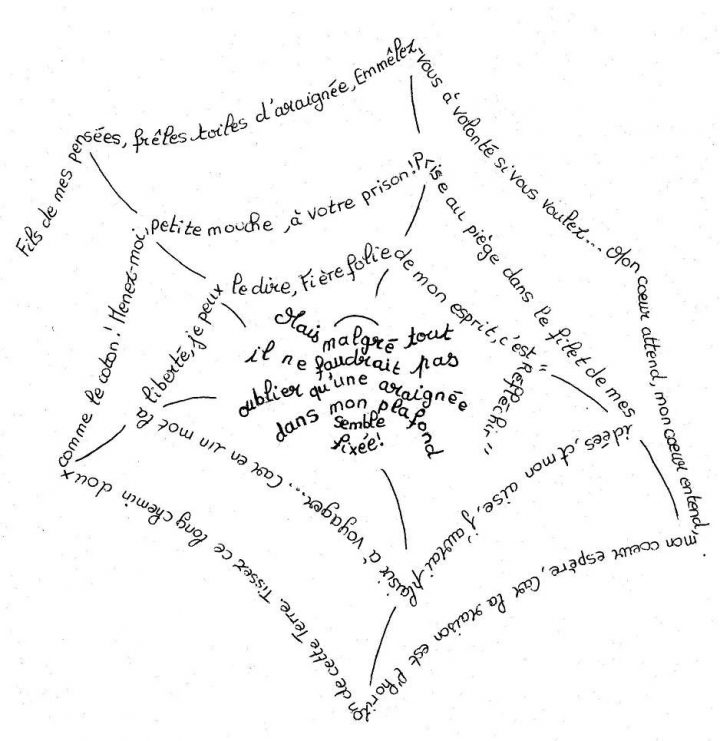 Fils de mes pensées, frêles toiles d'araignée, Emmêlez-
vous à volonté si vous voulez... Mon
coeur attend, mon coeur entend,
mon coeur espère, Car la raison est l'horizon
de cette Terre. Tissez ce long chemin doux
comme le coton! Menez-moi,
petite mouche, à votre prison!
Prise au piège dans le filet de mes
idées, et mon aise, j'aurai plaisir
à voyager... Car en un mot la
liberté, je peux
le dire, Fière folie
de mon esprit, c'est
"Réfléchir"
Mais malgré tout
il ne faudrait pas
oublier qu'une araignée
dans mon plafond
semble
fixée!